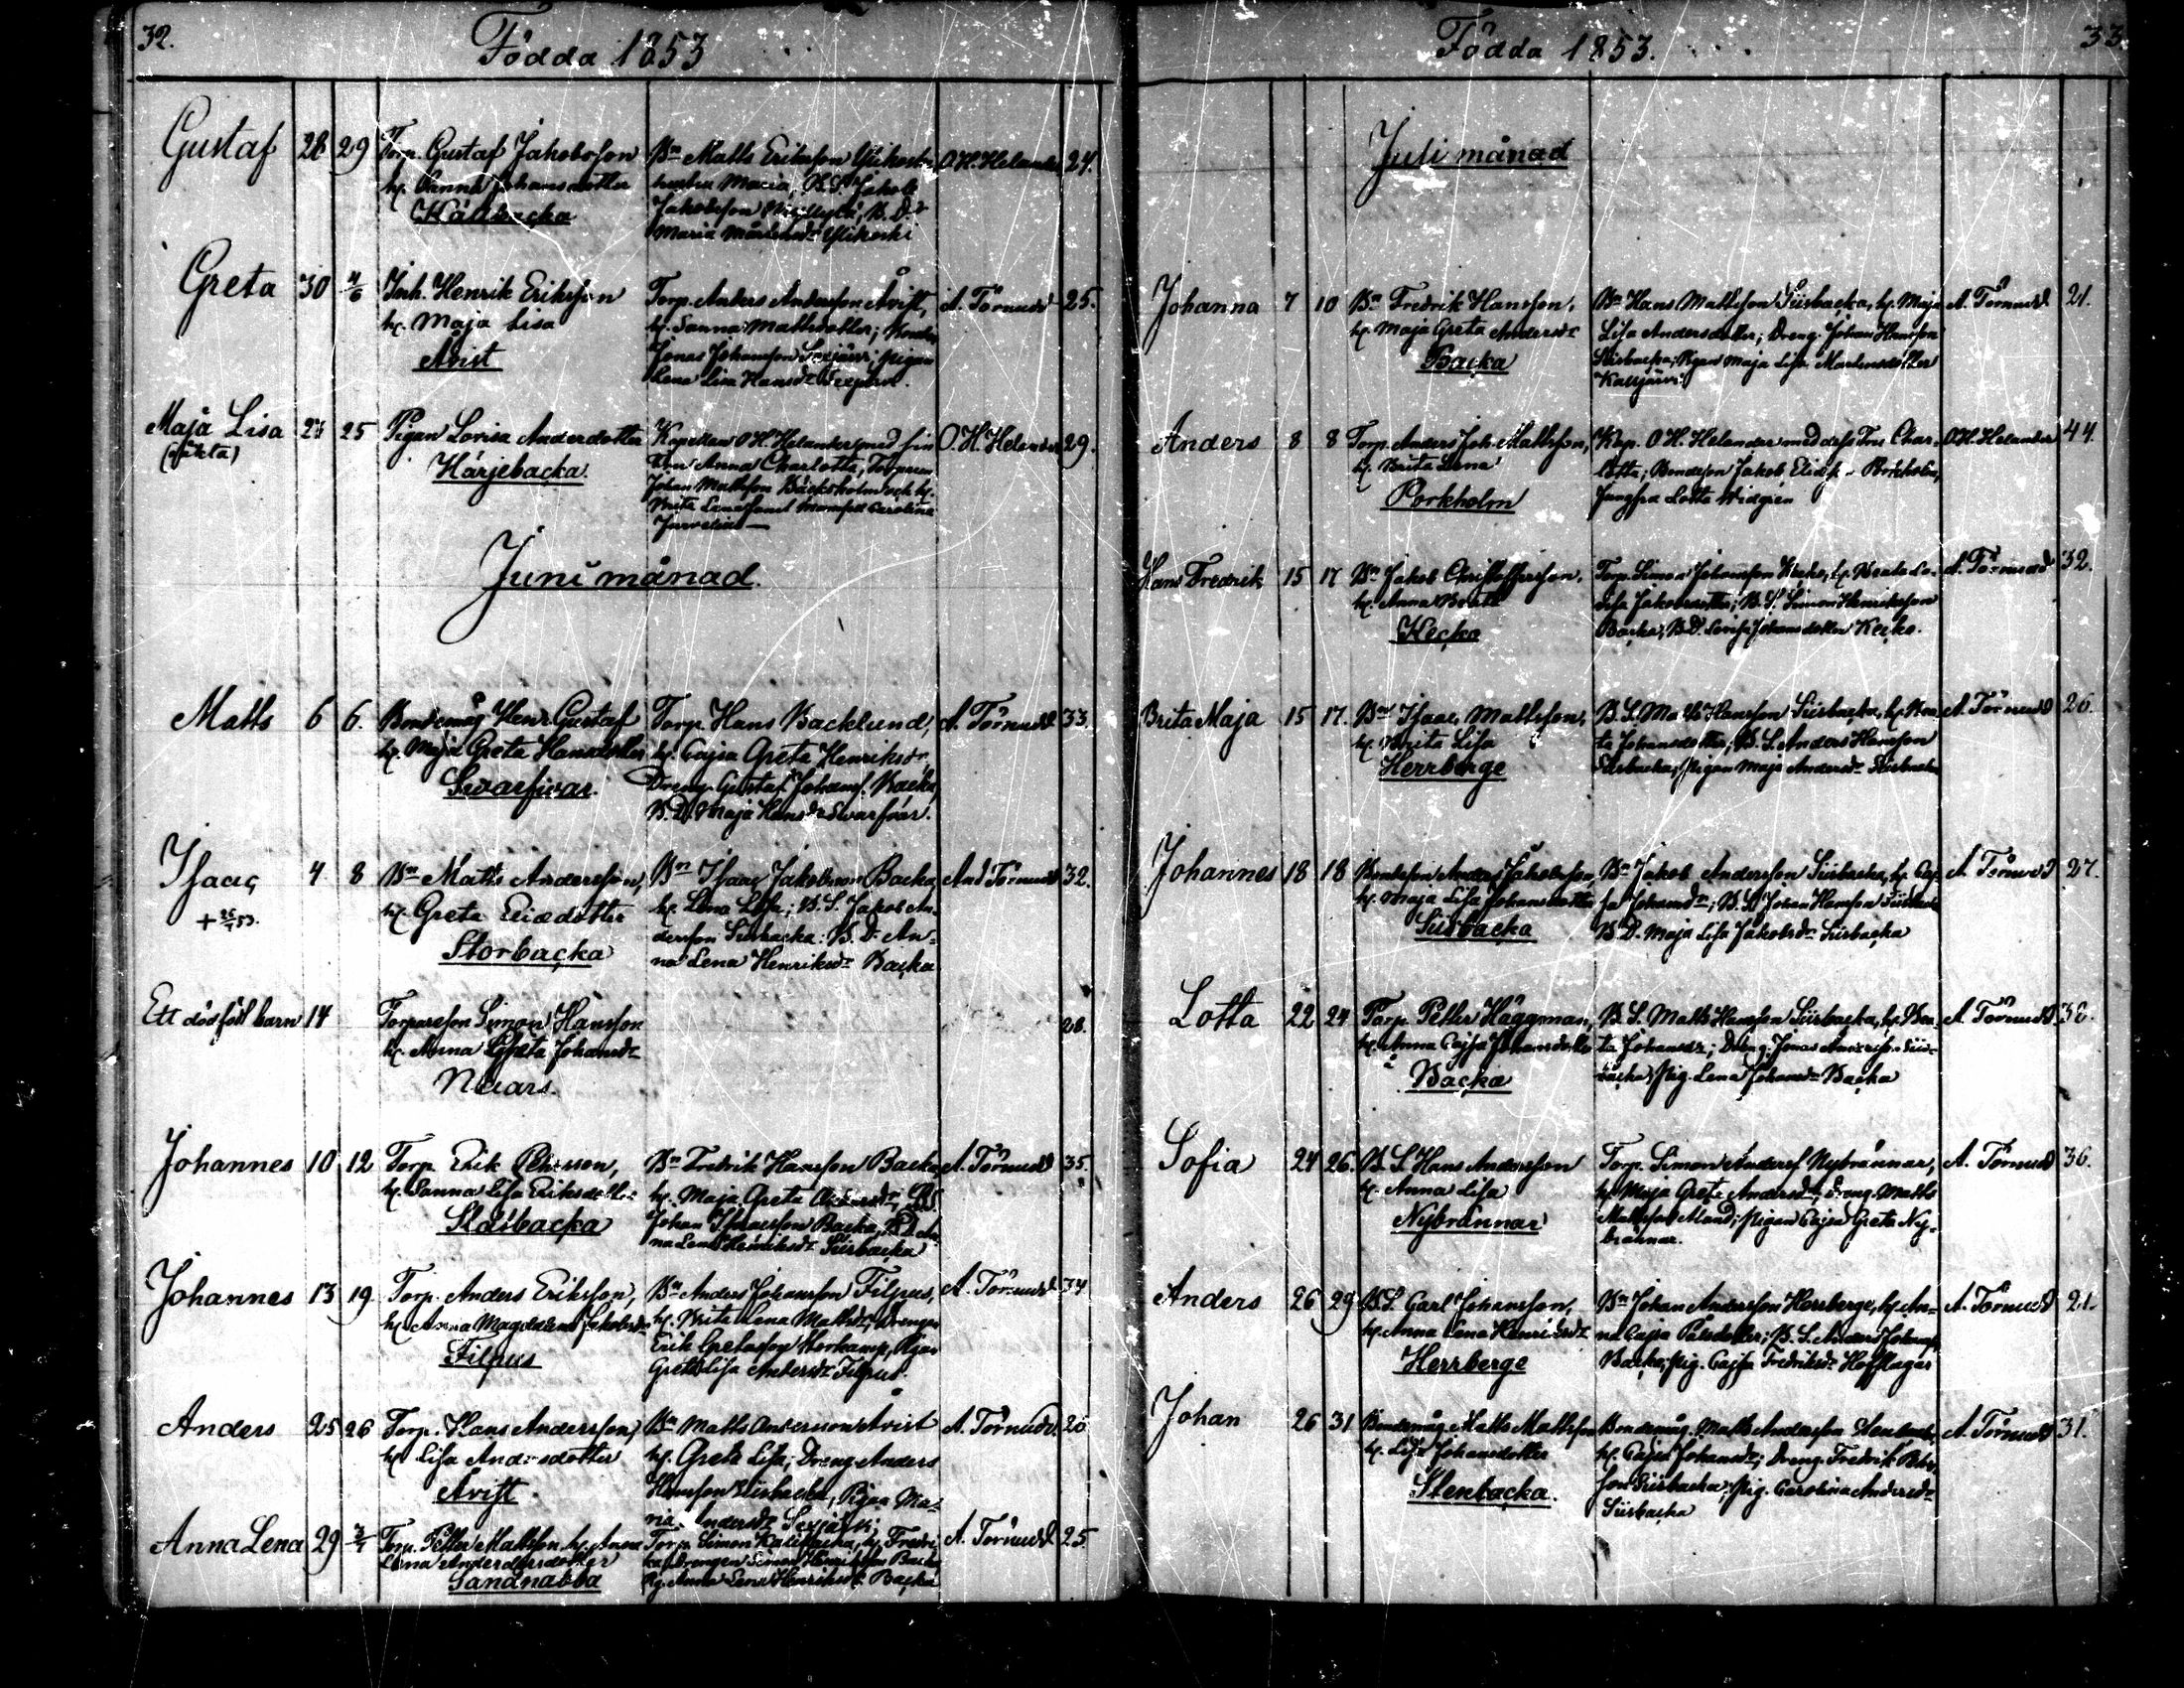 32.
Födda 1853
Gustaf 28 29 Torp. Gustaf Jakobsson
hu. Sanna Johansdotter
Kallbacka
Bn Matts Eriksson Ylikoski
hustru Maria, B.S. Jakob
Jakobsson, B.D.
Maria Ylikoski
O.H. Helander 24.
Greta 30 4/6 Inh. Henrik Eriksson
hu. Maja Lisa
Åvist
Torp. Anders Andersson Åvist,
hu. Sanna Mattsdotter;
Jonas Johansson Sexjärvi; Pigan
Lena Lisa Hansdr
A. Törnudd 25.
Maja Lisa 25 Pigan Lovisa Andersdotter
(oäkta)
Härjebacka.
Kapellan O.H. Helander med sin
Fru Anna Charlotta, Torparen
Johan Mattsson Bäcksholm och hu.
Brita Lena samt Mamsell Carolina
O.H. Helander 29.
Juni månad.
Matts 6 6. Bondemåg Henr. Gustaf
hu. Maja Greta Hansdotter
Svarfvar.
Torp. Hans Backlund,
hu. Cajsa Greta Henriksdr,
Dreng. Gustaf Johanss. Backa,
B.D. Maja Hansdr Svarfvar.
A. Törnudd 33.
Isaac 4 8 Bn Matts Andersson,
+ 53.
hu. Greta Ericdotter
Storbacka
Bn Isaac Jakobsson Backa
hu. Lena Lisa; B.S. Jakob An-
dersson Siirbacka: B.D. An-
na Lena Henriksdr Backa
And Törnudd 32.
Ett dödfödt barn 14 Torparesson Simon Hansson
hu. Anna Greta Johansdr
28.
Johannes 10 12 Torp. Erik Petersson,
hu. Sanna Lisa Eriksdotter
Slasbacka
Bn Fredrik Hansson Backa
hu. Maja Greta Andersdr, B.S.
Johan Isaacsson Backa, B.D. An-
na Lena Henriksdr Siirbacka
A. Törnudd 35.
Johannes 13 19 Torp. Anders Eriksson,
hu. Anna Magdalena Jakobsdr
Filpus
Bn Anders Johansson Filpus,
hu. Brita Lena Mattsdr, Drengen
Erik Gretasson Storkamp, Pigan
Greta Lisa Andersdr Filpus.
A. Törnudd 34
Anders 25 26 Torp. Hans Andersson,
hu. Lisa Andersdotter
Åvist.
Bn Matts Andersson Åvist
hu. Greta Lisa; Dreng Anders
Hansson Siirbacka, Pigan Ma-
ria Andersdr Sexjärvi;
A. Törnudd 20
Anna Lena 29 3/7 Torp. Petter Mattsson, hu. Anna
Lena Andersdotter
Sandnabba
Torp. Simon Kallbacka, hu. Fredri-
ka, Drengen Simon Henriksson Backa
Pig. Anna Lena Henriksdr Backa
A. Törnudd 25.
33.
Födda 1853.
Juli månad
Johanna 7 10 Bn Fredrik Hansson,
hu. Maja Greta Andersdr
Backa
Bn Hans Mattsson Siirbacka, hu. Maja
Lisa Andersdotter; Dreng. Johan Hansson
Siirbacka; Pigan Maja Lisa Mårtensdotter
Kalljärvi
A. Törnudd 21.
Anders 8 8 Torp. Anders Joh. Mattsson,
hu. Brita Lena
Porkholm
Kap. O.H. Helander med dess Fru Char-
lotta; Bondeson Jakob Porkholm,
Jungfru Lotta Widgrén
O.H. Helander 44.
Hans Fredrik 15 17 Bn Jakob Christoffersson,
hu. Anna Beata
Kecko
Torp. Simon Johansson Kecko, hu. Beata Lo-
visa Jakobsdotter; B.S. Simon Henriksson
Backa, B.D. Lovisa Johansdotter Kecko.
A. Törnudd 32.
Brita Maja 15 17. Bn Isaac Mattsson,
hu. Brita Lisa
Herrberge
B.S. Matts Hansson Siirbacka, hu. Bea-
ta Johansdotter; B.S. Anders Hansson
Siirbacka, Pigan Maja Andersdr Siirbacka
A. Törnudd 26.
Johannes 18 18 Bondeson Anders Jakobsson,
hu. Maja Lisa Johansdotter
Siirbacka
Bn Jakob Andersson Siirbacka, hu. Caj-
sa Johansdr; B.S. Johan Hansson Siirbacka
B.D. Maja Lisa Jakobsdr Siirbacka
A. Törnudd 27.
Lotta 22 24 Torp. Petter Häggman,
hu. Anna Cajsa Johansdotter
Backa
B.S. Matts Hansson Siirbacka, hu. Bea-
ta Johansdr; Dreng. Jonas Anderss. Siir-
backa, Pig. Lena Johansdr Backa
A. Törnudd 38.
Sofia 24 26. B.S. Hans Andersson
hu. Anna Lisa
Nybrännar
Torp. Simon Anderss. Nybrännar,
hu. Maja Greta Andersdr; Dreng. Matts
Mattsson; Pigan Cajsa Greta Ny-
brännar.
A. Törnudd 36.
Anders 26 29 B.S. Carl Johansson,
hu. Anna Lena Henriksdr
Herrberge
Bn Johan Andersson Herrberge, hu. An-
na Cajsa Pålsdotter; B.S. Anders Johanss.
Backa; Pig. Cajsa Fredriksdr Hofslagar
A. Törnudd 21.
Johan 26 31 Bondemåg Matts Mattsson
hu. Lisa Johansdotter
Stenbacka.
Bondemåg. Matts Andersson Stenbacka,
hu. Cajsa Johansdr; Dreng. Fredrik Peters-
son Siirbacka; Pig. Carolina Andersdr
Siirbacka
A. Törnudd 31.